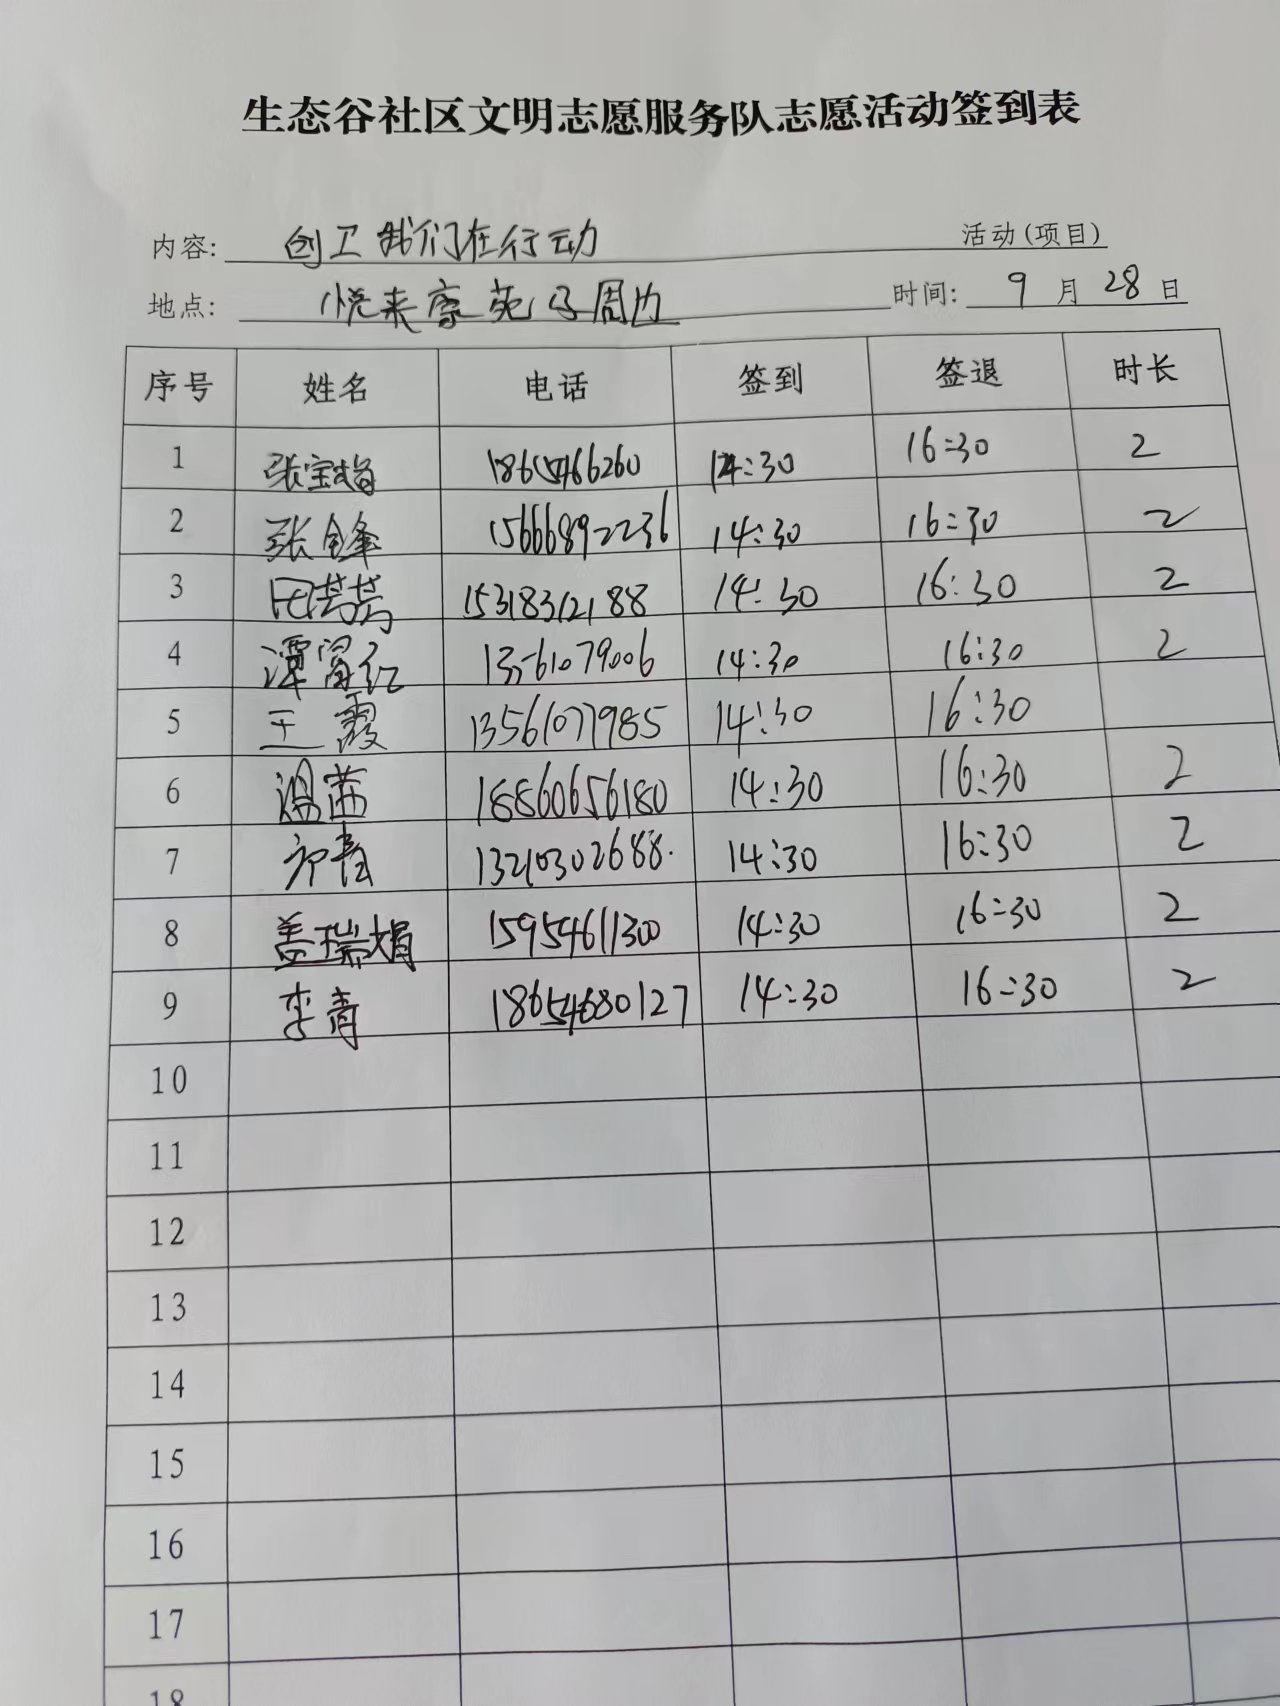 生态谷社区文明志愿服务队志愿活动签到表
内容: 创卫 我们在行动 活动(项目)
地点: 悦来康苑 周边 时间: 9 月 28 日
序号 姓名 电话 签到 签退 时长
1 张宝娟 14:30 16:30 2
2 张锋 15666892236 14:30 16:30 2
3 15318312188 14:30 16:30 2
4 谭富红 13561079006 14:30 16:30 2
5 王霞 13561077985 14:30 16:30
6 温茜 18860656180 14:30 16:30 2
7 13210302688. 14:30 16:30 2
8 盖瑞娟 15954611300 14:30 16:30 2
9 李青 18654680127 14:30 16:30 2
10
11
12
13
14
15
16
17
18